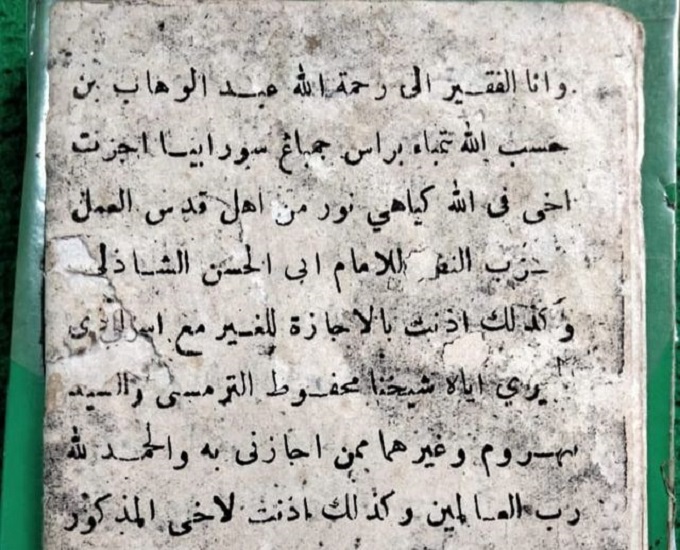 وانا الفقير الى رحمة الله عبد الوهاب بن
حسب الله تمباء براس جمباڠ سورابيا اجزت
اخى فى الله كياهي نور من اهل قدس العمل
للامام ابى الحسن الشاذلى
وكذلك اذنت بالاجازة للغير مع
اياه شيخنا محفوظ الترمسى والسيد
وغيرهما ممن اجازنى به والحمد لله
رب العالمين وكذلك اذنت لاخى المذكور